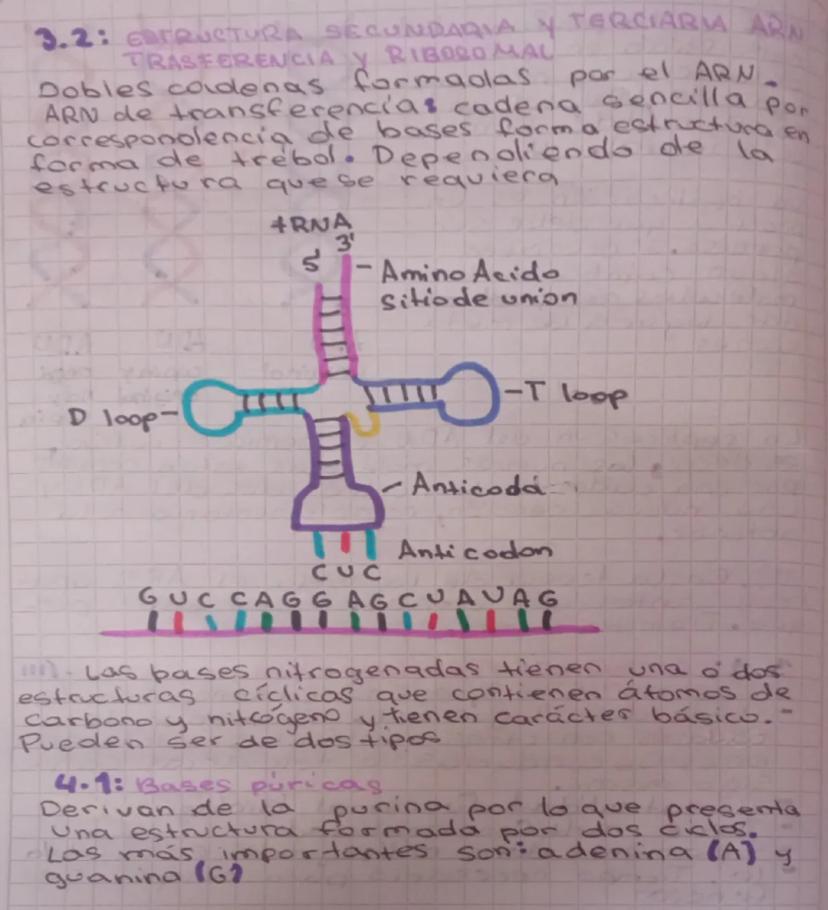 3.2: ESTRUCTURA SECUNDARIA Y TERCIARIA ARN
TRASFERENCIA Y RIBOROMAL
Dobles cadenas formadas por el ARN.
ARN de transferencia: cadena sencilla por
correspondencia de bases forma estructura en
forma de trébol. Dependiendo de la
estructura que se requiera
tRNA
3'
5'
- Amino Acido
sitio de union
D loop-
-T loop
- Anticoda
Anticodon
CUC
G U C C A G G A G C U A U A G
Las bases nitrogenadas tienen una o dos
estructuras cíclicas que contienen átomos de
carbono y nitrógeno y tienen carácter básico.-
Pueden ser de dos tipos
4.1: Bases púricas
Derivan de la purina por lo que presenta
una estructura formada por dos ciclos.
Las más importantes son: adenina (A) y
guanina (G)